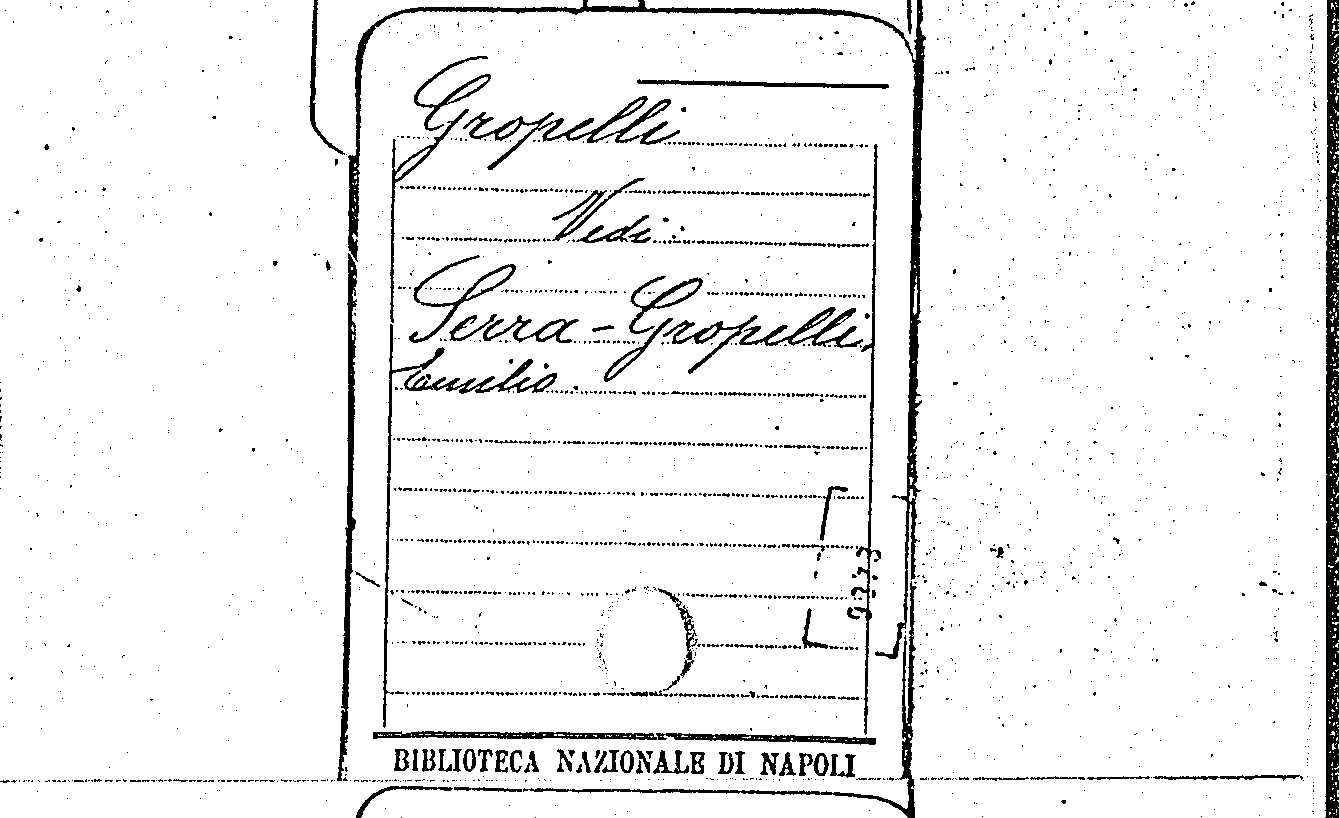 Gropelli
Vedi:
Serra-Gropelli,
Emilio.
BIBLIOTECA NAZIONALE DI NAPOLI